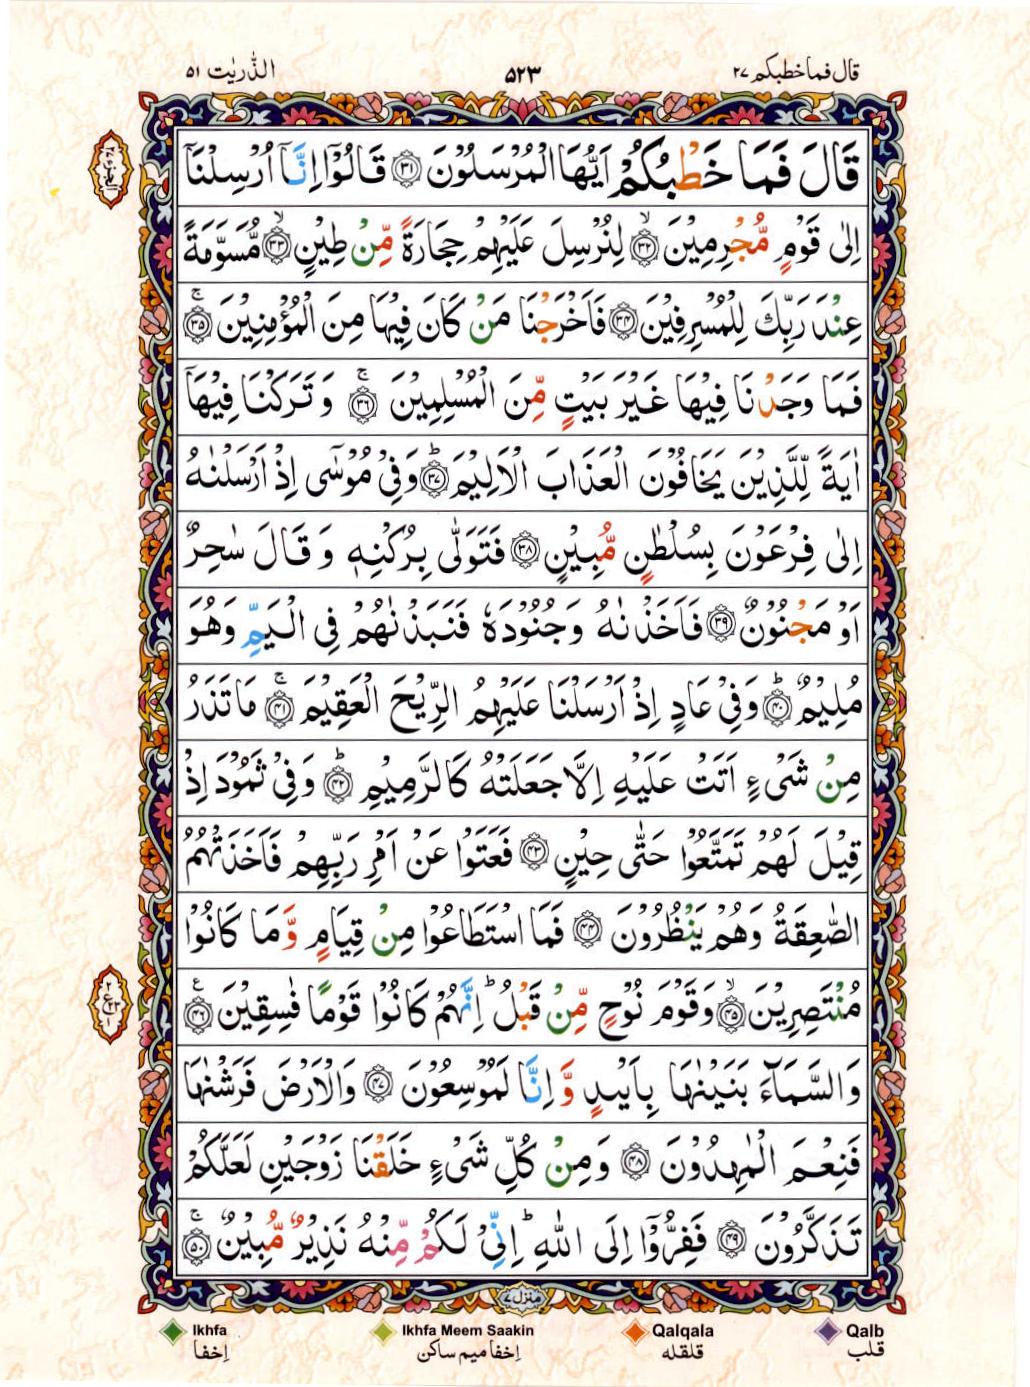 قال فما خطبکم ۲۷
۵۲۳
الذّٰریٰت ۵۱
قَالَ فَمَا خَطْبُكُمْ اَيُّهَا الْمُرْسَلُوْنَ ﴿۳۱﴾ قَالُوْۤا اِنَّاۤ اُرْسِلْنَاۤ
اِلٰى قَوْمٍ مُّجْرِمِيْنَ ﴿۳۲﴾ۙ لِنُرْسِلَ عَلَيْهِمْ حِجَارَةً مِّنْ طِيْنٍ ﴿۳۳﴾ۙ مُّسَوَّمَةً
عِنْدَ رَبِّكَ لِلْمُسْرِفِيْنَ ﴿۳۴﴾ فَاَخْرَجْنَا مَنْ كَانَ فِيْهَا مِنَ الْمُؤْمِنِيْنَ ﴿۳۵﴾ۚ
فَمَا وَجَدْنَا فِيْهَا غَيْرَ بَيْتٍ مِّنَ الْمُسْلِمِيْنَ ﴿۳۶﴾ۚ وَ تَرَكْنَا فِيْهَاۤ
اٰيَةً لِّلَّذِيْنَ يَخَافُوْنَ الْعَذَابَ الْاَلِيْمَ ﴿۳۷﴾ؕ وَفِيْ مُوْسٰۤى اِذْ اَرْسَلْنٰهُ
اِلٰى فِرْعَوْنَ بِسُلْطٰنٍ مُّبِيْنٍ ﴿۳۸﴾ فَتَوَلّٰى بِرُكْنِهٖ وَ قَالَ سٰحِرٌ
اَوْ مَجْنُوْنٌ ﴿۳۹﴾ فَاَخَذْنٰهُ وَ جُنُوْدَهٗ فَنَبَذْنٰهُمْ فِى الْيَمِّ وَهُوَ
مُلِيْمٌ ﴿۴۰﴾ؕ وَفِيْ عَادٍ اِذْ اَرْسَلْنَا عَلَيْهِمُ الرِّيْحَ الْعَقِيْمَ ﴿۴۱﴾ۚ مَا تَذَرُ
مِنْ شَىْءٍ اَتَتْ عَلَيْهِ اِلَّا جَعَلَتْهُ كَالرَّمِيْمِ ﴿۴۲﴾ؕ وَفِيْ ثَمُوْدَ اِذْ
قِيْلَ لَهُمْ تَمَتَّعُوْا حَتّٰى حِيْنٍ ﴿۴۳﴾ فَعَتَوْا عَنْ اَمْرِ رَبِّهِمْ فَاَخَذَتْهُمُ
الصّٰعِقَةُ وَهُمْ يَنْظُرُوْنَ ﴿۴۴﴾ فَمَا اسْتَطَاعُوْا مِنْ قِيَامٍ وَّ مَا كَانُوْا
مُنْتَصِرِيْنَ ﴿۴۵﴾ۙ وَقَوْمَ نُوْحٍ مِّنْ قَبْلُ ؕ اِنَّهُمْ كَانُوْا قَوْمًا فٰسِقِيْنَ ﴿۴۶﴾ع
وَالسَّمَآءَ بَنَيْنٰهَا بِاَيْىدٍ وَّ اِنَّا لَمُوْسِعُوْنَ ﴿۴۷﴾ وَالْاَرْضَ فَرَشْنٰهَا
فَنِعْمَ الْمٰهِدُوْنَ ﴿۴۸﴾ وَمِنْ كُلِّ شَىْءٍ خَلَقْنَا زَوْجَيْنِ لَعَلَّكُمْ
تَذَكَّرُوْنَ ﴿۴۹﴾ فَفِرُّوْۤا اِلَى اللّٰهِ ؕ اِنِّيْ لَكُمْ مِّنْهُ نَذِيْرٌ مُّبِيْنٌ ﴿۵۰﴾ۚ
منزل ۷
Ikhfa
اِخفا
Ikhfa Meem Saakin
اِخفا میم ساکن
Qalqala
قلقلہ
Qalb
قلب